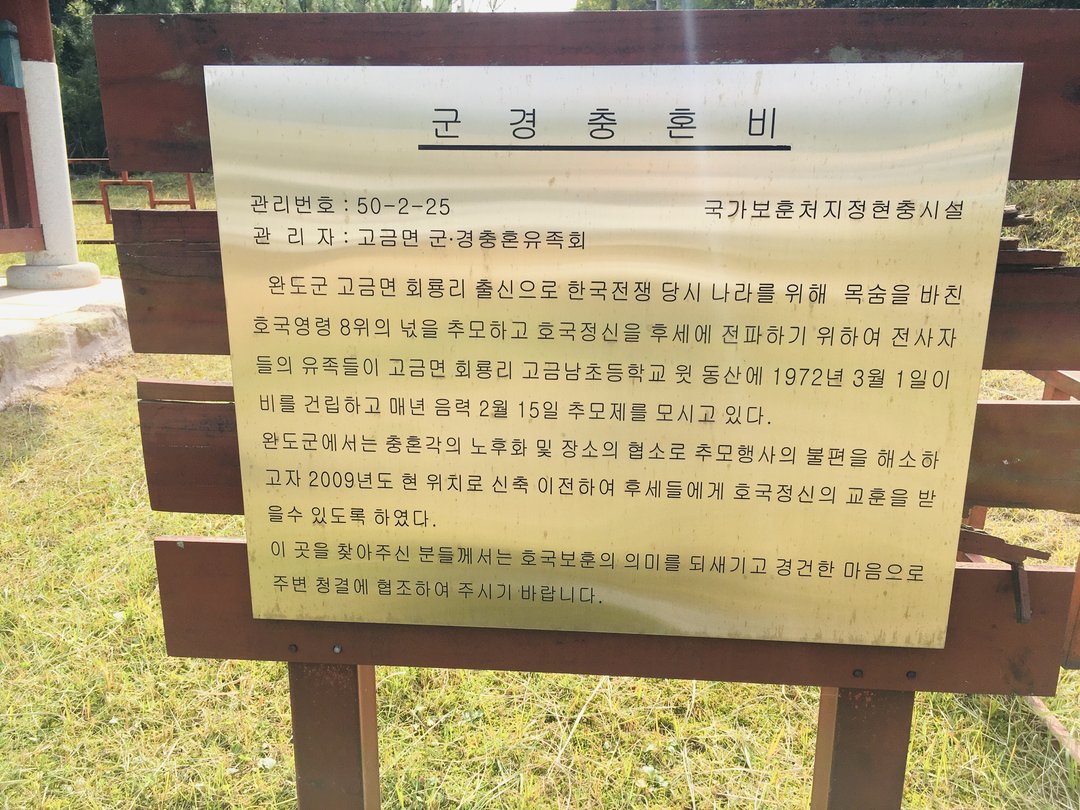 군 경 충 혼 비
관리번호 : 50-2-25
국가보훈처지정현충시설
관 리 자 : 고금면 군·경충혼유족회
완도군 고금면 회룡리 출신으로 한국전쟁 당시 나라를 위해 목숨을 바친
호국영령 8위의 넋을 추모하고 호국정신을 후세에 전파하기 위하여 전사자
들의 유족들이 고금면 회룡리 고금남초등학교 윗 동산에 1972년 3월 1일이
비를 건립하고 매년 음력 2월 15일 추모제를 모시고 있다.
완도군에서는 충혼각의 노후화 및 장소의 협소로 추모행사의 불편을 해소하
고자 2009년도 현 위치로 신축 이전하여 후세들에게 호국정신의 교훈을 받
을수 있도록 하였다.
이 곳을 찾아주신 분들께서는 호국보훈의 의미를 되새기고 경건한 마음으로
주변 청결에 협조하여 주시기 바랍니다.